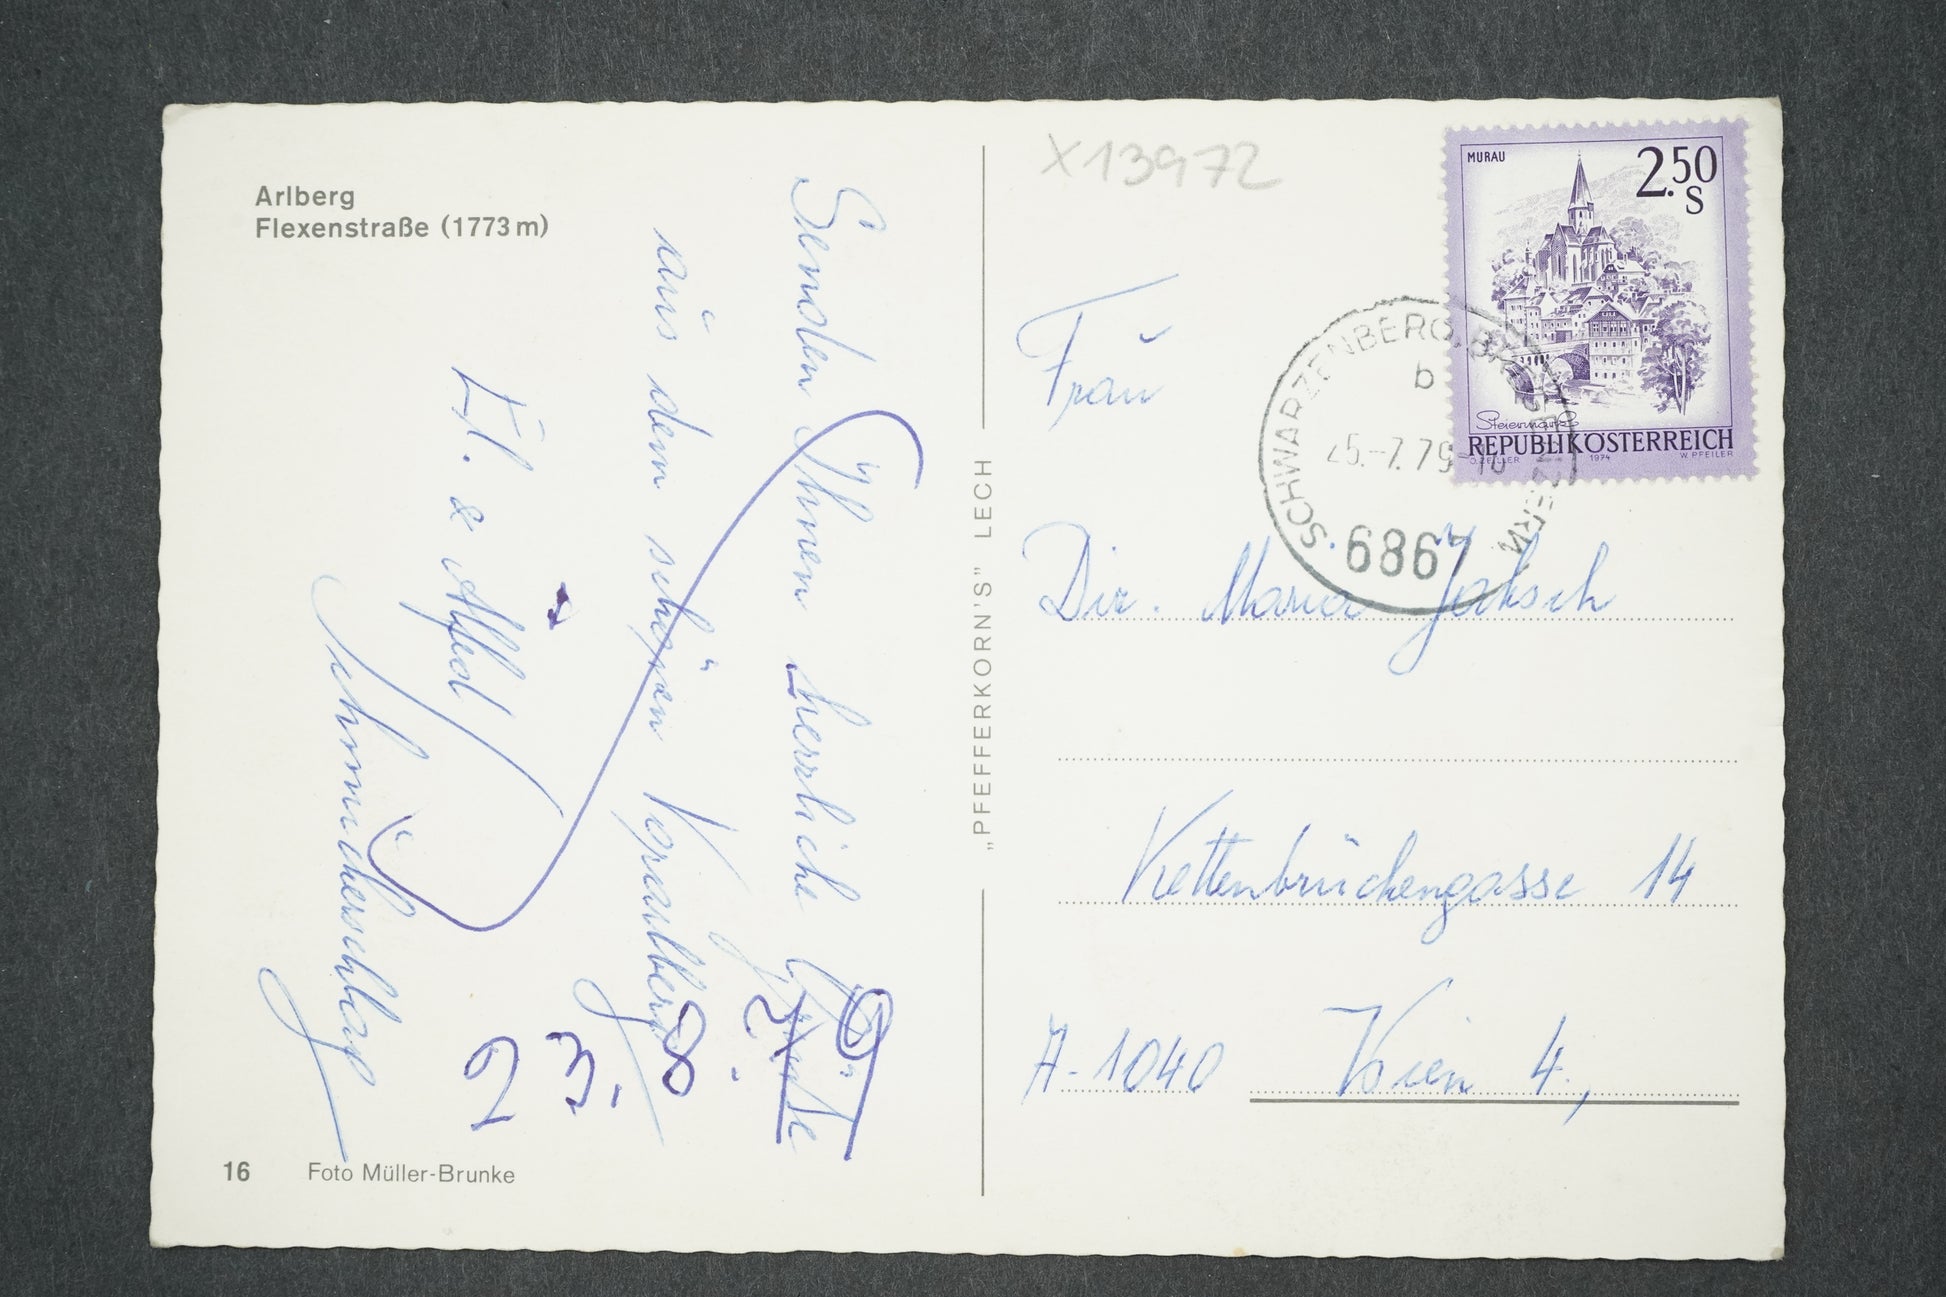 Arlberg
Flexenstraße (1773 m)
Senden Ihnen herrliche Grüße
aus dem schönen Vorarlberg
El. & Alfred
Schmückerschlag
23. 8.
16 Foto Müller-Brunke
„PFEFFERKORN'S” LECH
X13972
MURAU
2.50
S
Steiermark
REPUBLIK ÖSTERREICH
O. ZEILLER 1974 W. PFEILER
SCHWARZENBERG, BREGENZERW.
b
25.-7.79-10
6867
Frau
Dir. Maria Jaksch
Kettenbrückengasse 14
A-1040 Wien 4.,